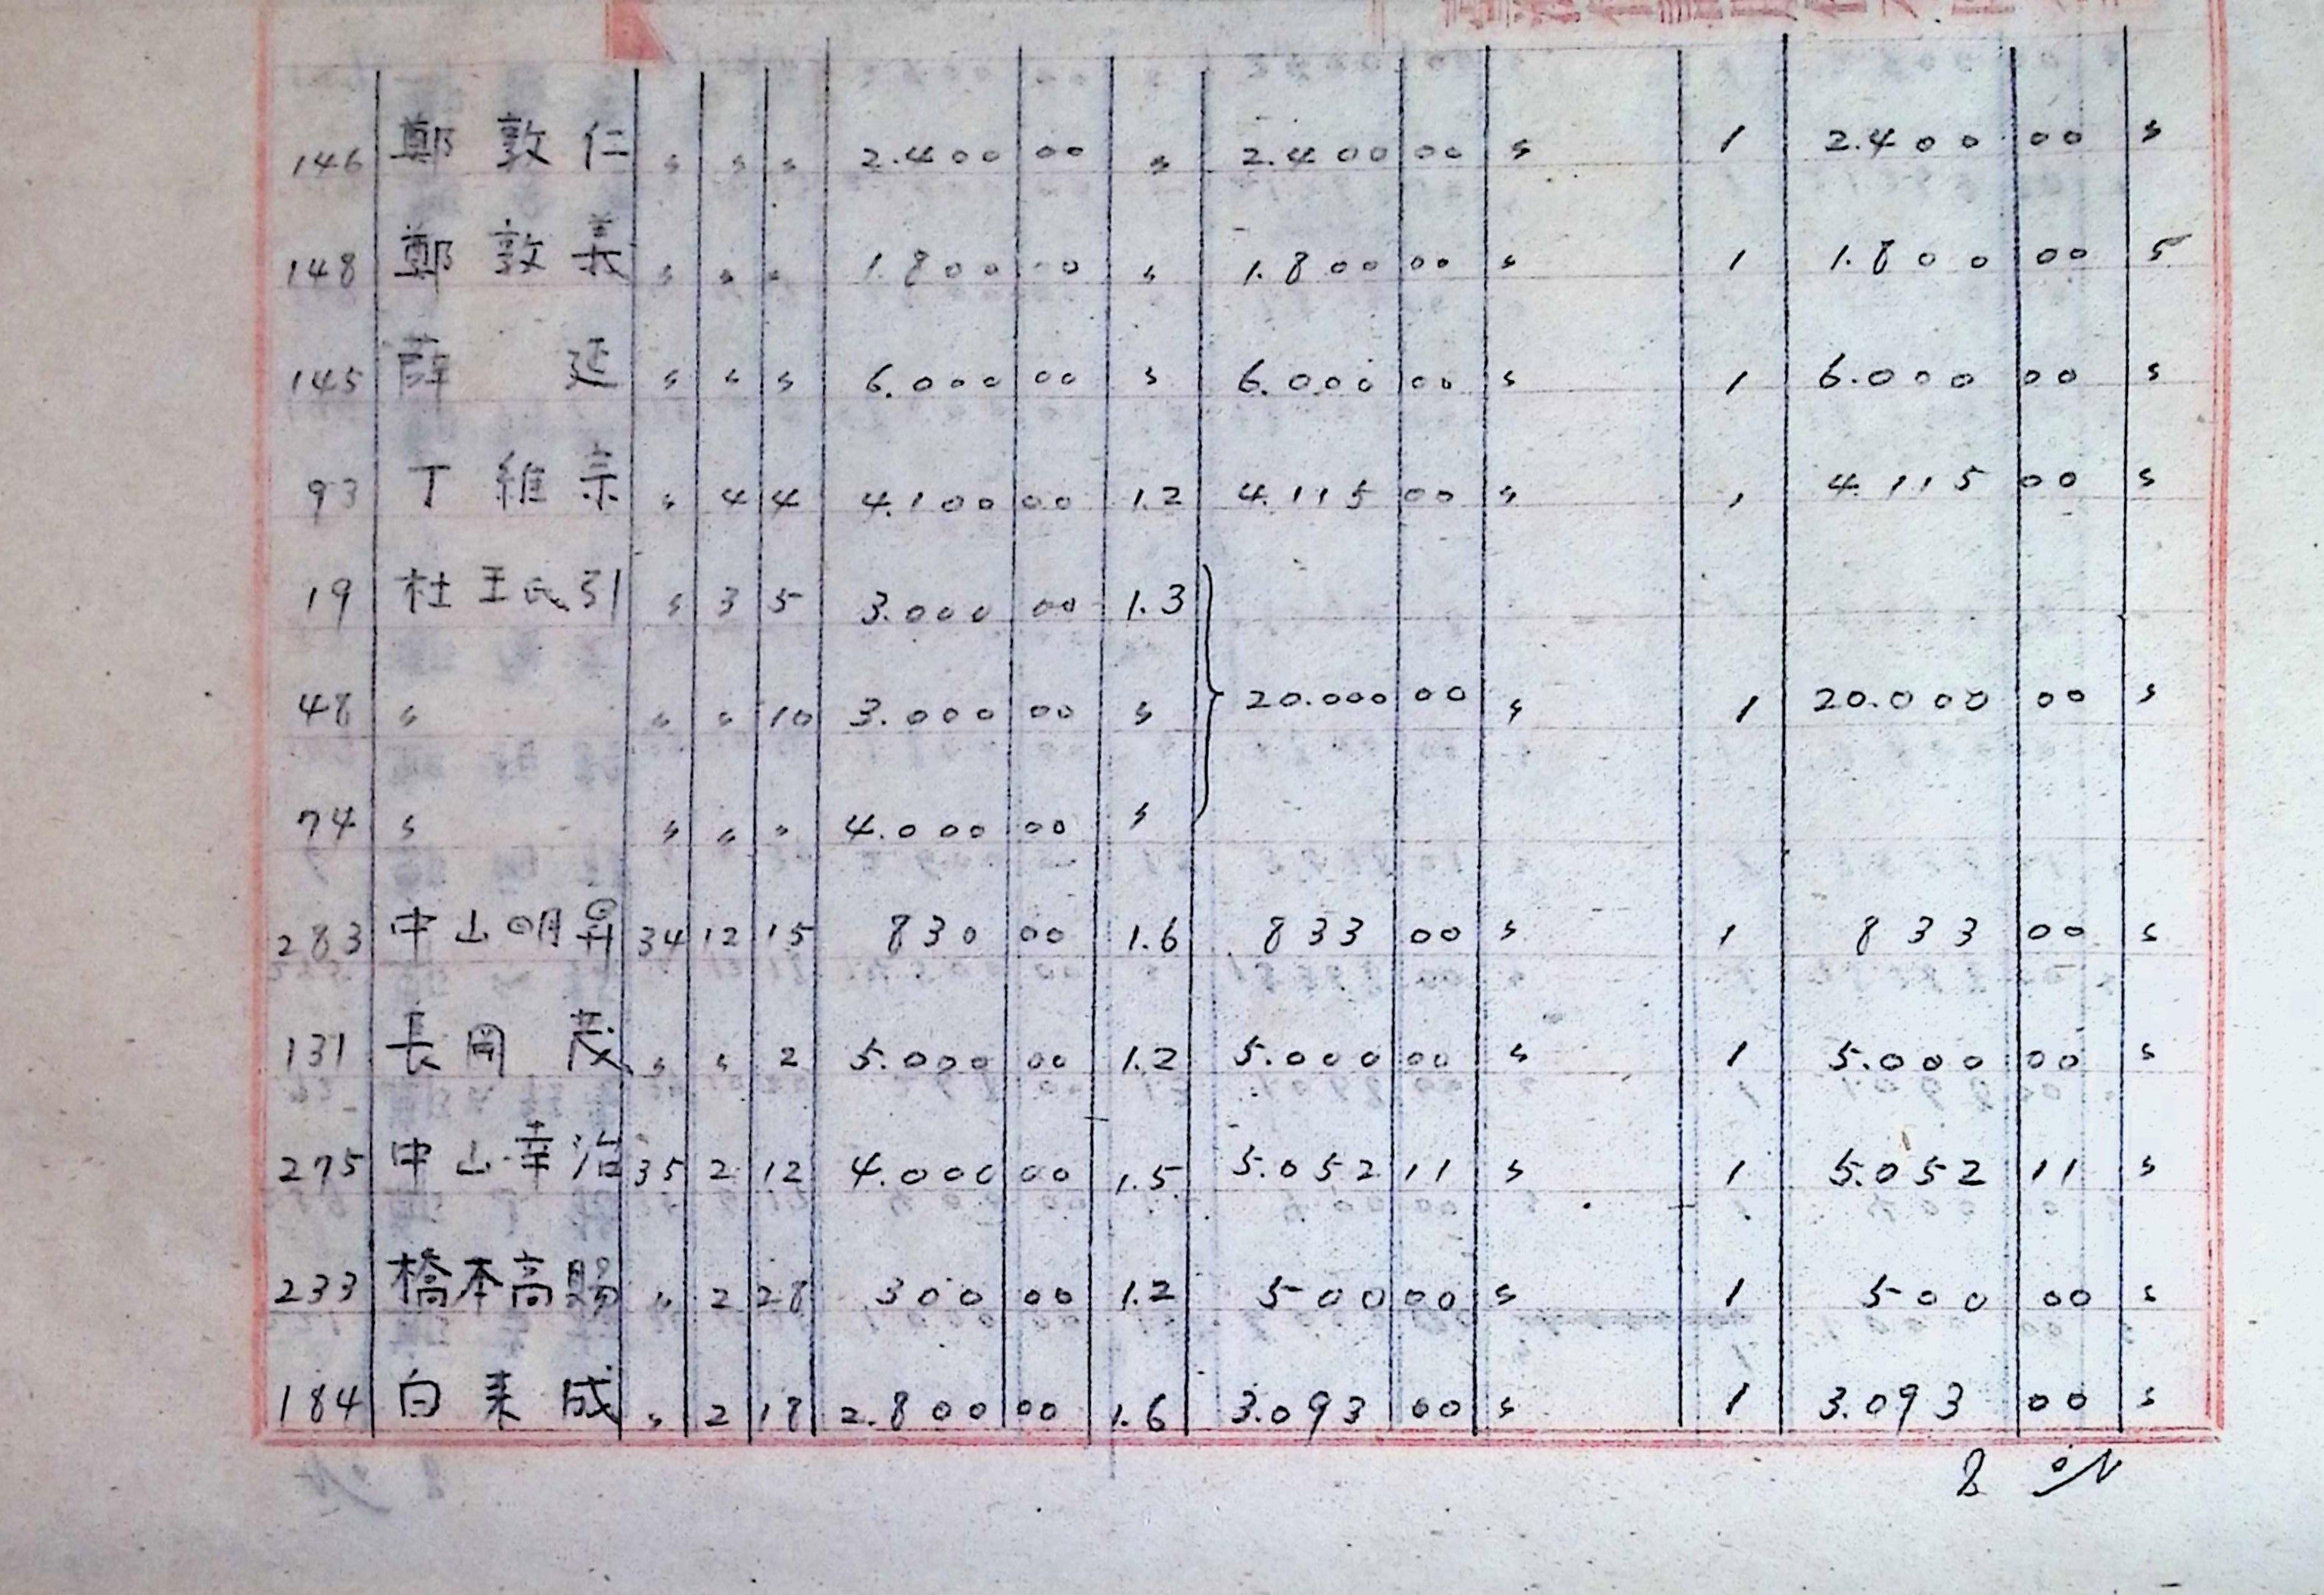 146 鄭敦仁 〃 〃 〃 2.400 00 〃 2.400 00 〃 1 2.400 00 〃
148 鄭敦義 〃 〃 〃 1.800 00 〃 1.800 00 〃 1 1.800 00 〃
145 薛延 〃 〃 〃 6.000 00 〃 6.000 00 〃 1 6.000 00 〃
93 丁維宗 〃 4 4 4.100 00 1.2 4.115 00 〃 1 4.115 00 〃
19 杜王氏引 〃 3 5 3.000 00 1.3
48 〃 〃 〃 10 3.000 00 〃 20.000 00 〃 1 20.000 00 〃
74 〃 〃 〃 〃 4.000 00 〃
283 中山明昇 34 12 15 830 00 1.6 833 00 〃 1 833 00 〃
131 長岡茂 〃 〃 2 5.000 00 1.2 5.000 00 〃 1 5.000 00 〃
275 中山幸治 35 2 12 4.000 00 1.5 5.052 11 〃 1 5.052 11 〃
233 橋本高賜 〃 2 28 300 00 1.2 500 00 〃 1 500 00 〃
184 白来成 〃 2 18 2.800 00 1.6 3.093 00 〃 1 3.093 00 〃
8